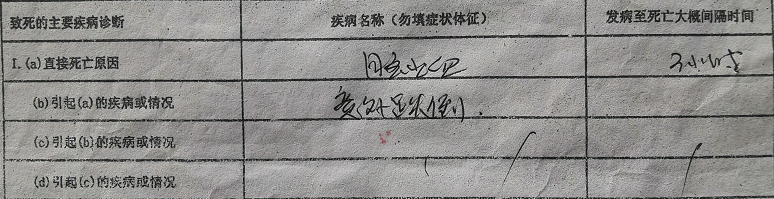 致死的主要疾病诊断 疾病名称（勿填症状体征） 发病至死亡大概间隔时间
I.(a)直接死亡原因 小时
(b)引起(a)的疾病或情况 意外跌倒.
(c)引起(b)的疾病或情况 /
(d)引起(c)的疾病或情况 /